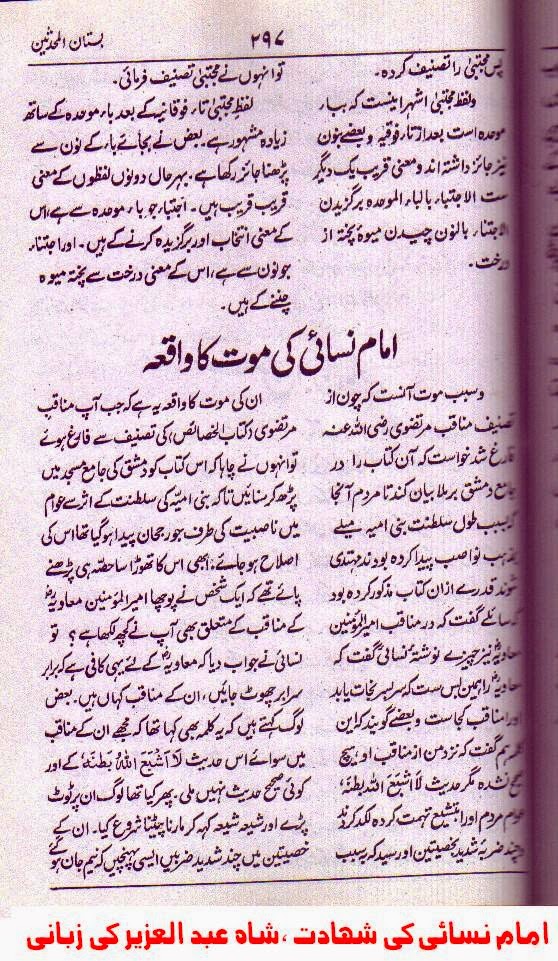 بستان المحدثین
۲۹۷
پس مجتبیٰ را تصنیف کردہ۔
ولفظ مجتبیٰ اشہر اینست کہ بباء
موحدہ است بعد از تاء فوقیہ و بعضے بنون
نیز جائز داشتہ اند و معنی قریب یک دیگر
ست الاجتباء بالباء الموحدہ برگزیدن
الاجتناء بالنون چیدن میوۂ پختہ از
درخت۔
تو انہوں نے مجتبیٰ تصنیف فرمائی۔
لفظ مجتبیٰ تاء فوقانیہ کے بعد باء موحدہ کے ساتھ
زیادہ مشہور ہے۔ بعض نے بجائے باء کے نون سے
پڑھنا جائز رکھا ہے۔ بہرحال دونوں لفظوں کے معنی
قریب قریب ہیں۔ اجتباء جو باء موحدہ سے ہے، اس
کے معنی انتخاب اور برگزیدہ کرنے کے ہیں۔ اور اجتناء
جو نون سے ہے، اس کے معنی درخت سے پختہ میوہ
چننے کے ہیں۔
امام نسائیؒ کی موت کا واقعہ
وسبب موت آنست کہ چون از
تصنیف مناقب مرتضوی رضی اللہ عنہ
فارغ شد خواست کہ آن کتاب را در
جامع دمشق برملا بیان کند تا مردم آنجا
کہ بسبب طول سلطنت بنی امیہ میلے
بمذہب نواصب پیدا کردہ بودند مہتدی
شوند قدرے ازان کتاب مذکور کردہ بود
کہ سائلے گفت کہ در مناقب امیر المؤمنین
معاویہؓ نیز چیزے نوشتۂ نسائی گفت کہ
معاویہؓ را ہمین بس ست کہ سر بسر نجات یابد
اورا مناقب کجاست و بعضے گویند کہ این
کلمہ ہم گفت کہ نزد من از مناقب او، ہیچ
صحیح نشدہ مگر حدیث لا اشبع اللہ بطنہ،
عوام مردم اورا بتشیع تہمت کردہ لکد کردند
و چند ضربۂ شدید بخصیتین او رسید کہ بسبب
ان کی موت کا واقعہ یہ ہے کہ جب آپ مناقب
مرتضوی (کتاب الخصائص) کی تصنیف سے فارغ ہوئے
تو انہوں نے چاہا کہ اس کتاب کو دمشق کی جامع مسجد میں
پڑھ کر سنائیں تاکہ بنی امیہ کی سلطنت کے اثر سے عوام
میں ناصبیت کی طرف جو رجحان پیدا ہو گیا تھا اس کی
اصلاح ہو جائے، ابھی اس کا تھوڑا سا حصّہ ہی پڑھنے
پائے تھے کہ ایک شخص نے پوچھا امیر المؤمنین معاویہؓ
کے مناقب کے متعلق بھی آپ نے کچھ لکھا ہے؟ تو
نسائی نے جواب دیا کہ معاویہؓ کے لئے یہی کافی ہے کہ برابر
سرابر چھوٹ جائیں، ان کے مناقب کہاں ہیں۔ بعض
لوگ کہتے ہیں کہ یہ کلمہ بھی کہا تھا کہ مجھے ان کے مناقب
میں سوائے اس حدیث لَا اَشْبَعَ اللہُ بَطْنَهُ کے اور
کوئی صحیح حدیث نہیں ملی۔ پھر کیا تھا لوگ ان پر ٹوٹ
پڑے اور شیعہ شیعہ کہہ کر مارنا پیٹنا شروع کیا۔ ان کے
خصیتین میں چند شدید ضربیں ایسی پہنچیں کہ نیم جان ہو گئے
امام نسائی کی شھادت ،شاہ عبد العزیز کی زبانی